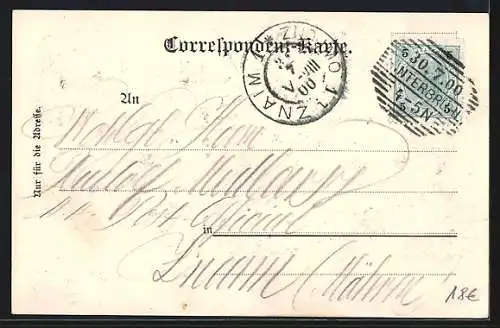 Correspondenz-Karte.
ZNAIM ZNOJMO
VIII
00
30.7.00
5N
An
Wohlgeb. Herrn
Rudolf
k.k. Post-Official
in
Znaim (Mähren)
Nur für die Adresse.
18€